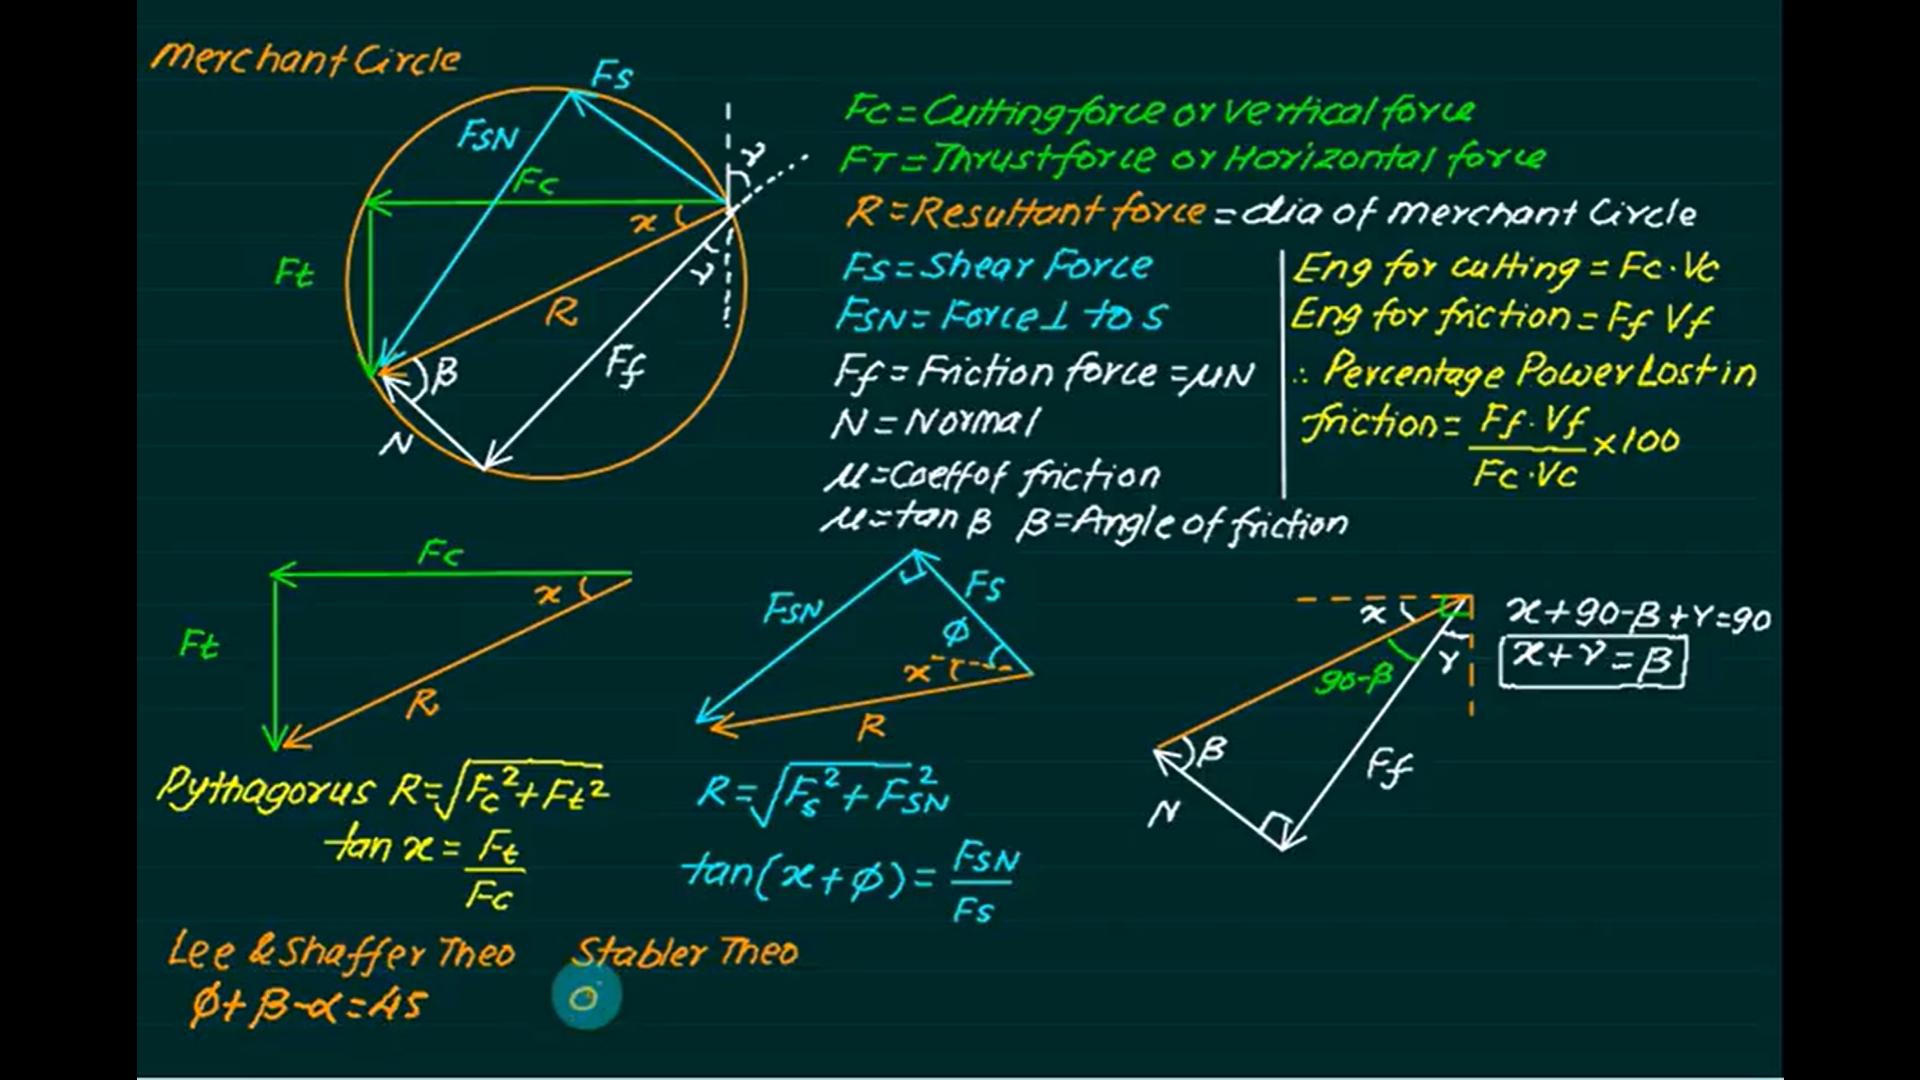 Merchant Circle
Fs
FSN
Fc
γ
x
γ
Ft
R
Ff
β
N
Fc = Cutting force or vertical force
FT = Thrust force or Horizontal force
R = Resultant force = dia of merchant Circle
Fs = Shear Force
FSN = Force ⊥ to s
Ff = Friction force = μN
N = Normal
μ = Coeff of friction
μ = tan β β = Angle of friction
Eng for cutting = Fc·Vc
Eng for friction = Ff Vf
∴ Percentage Power Lost in
friction = Ff·Vf / Fc·Vc × 100
Fc
x
Ft
R
Pythagorus R = √Fc² + Ft²
tan x = Ft / Fc
FSN
Fs
φ
x
R
R = √Fs² + FSN²
tan(x + φ) = FSN / Fs
x
90-β
γ
β
Ff
N
x + 90 - β + γ = 90
x + γ = β
Lee & Shaffer Theo
φ + β - α = 45
Stabler Theo